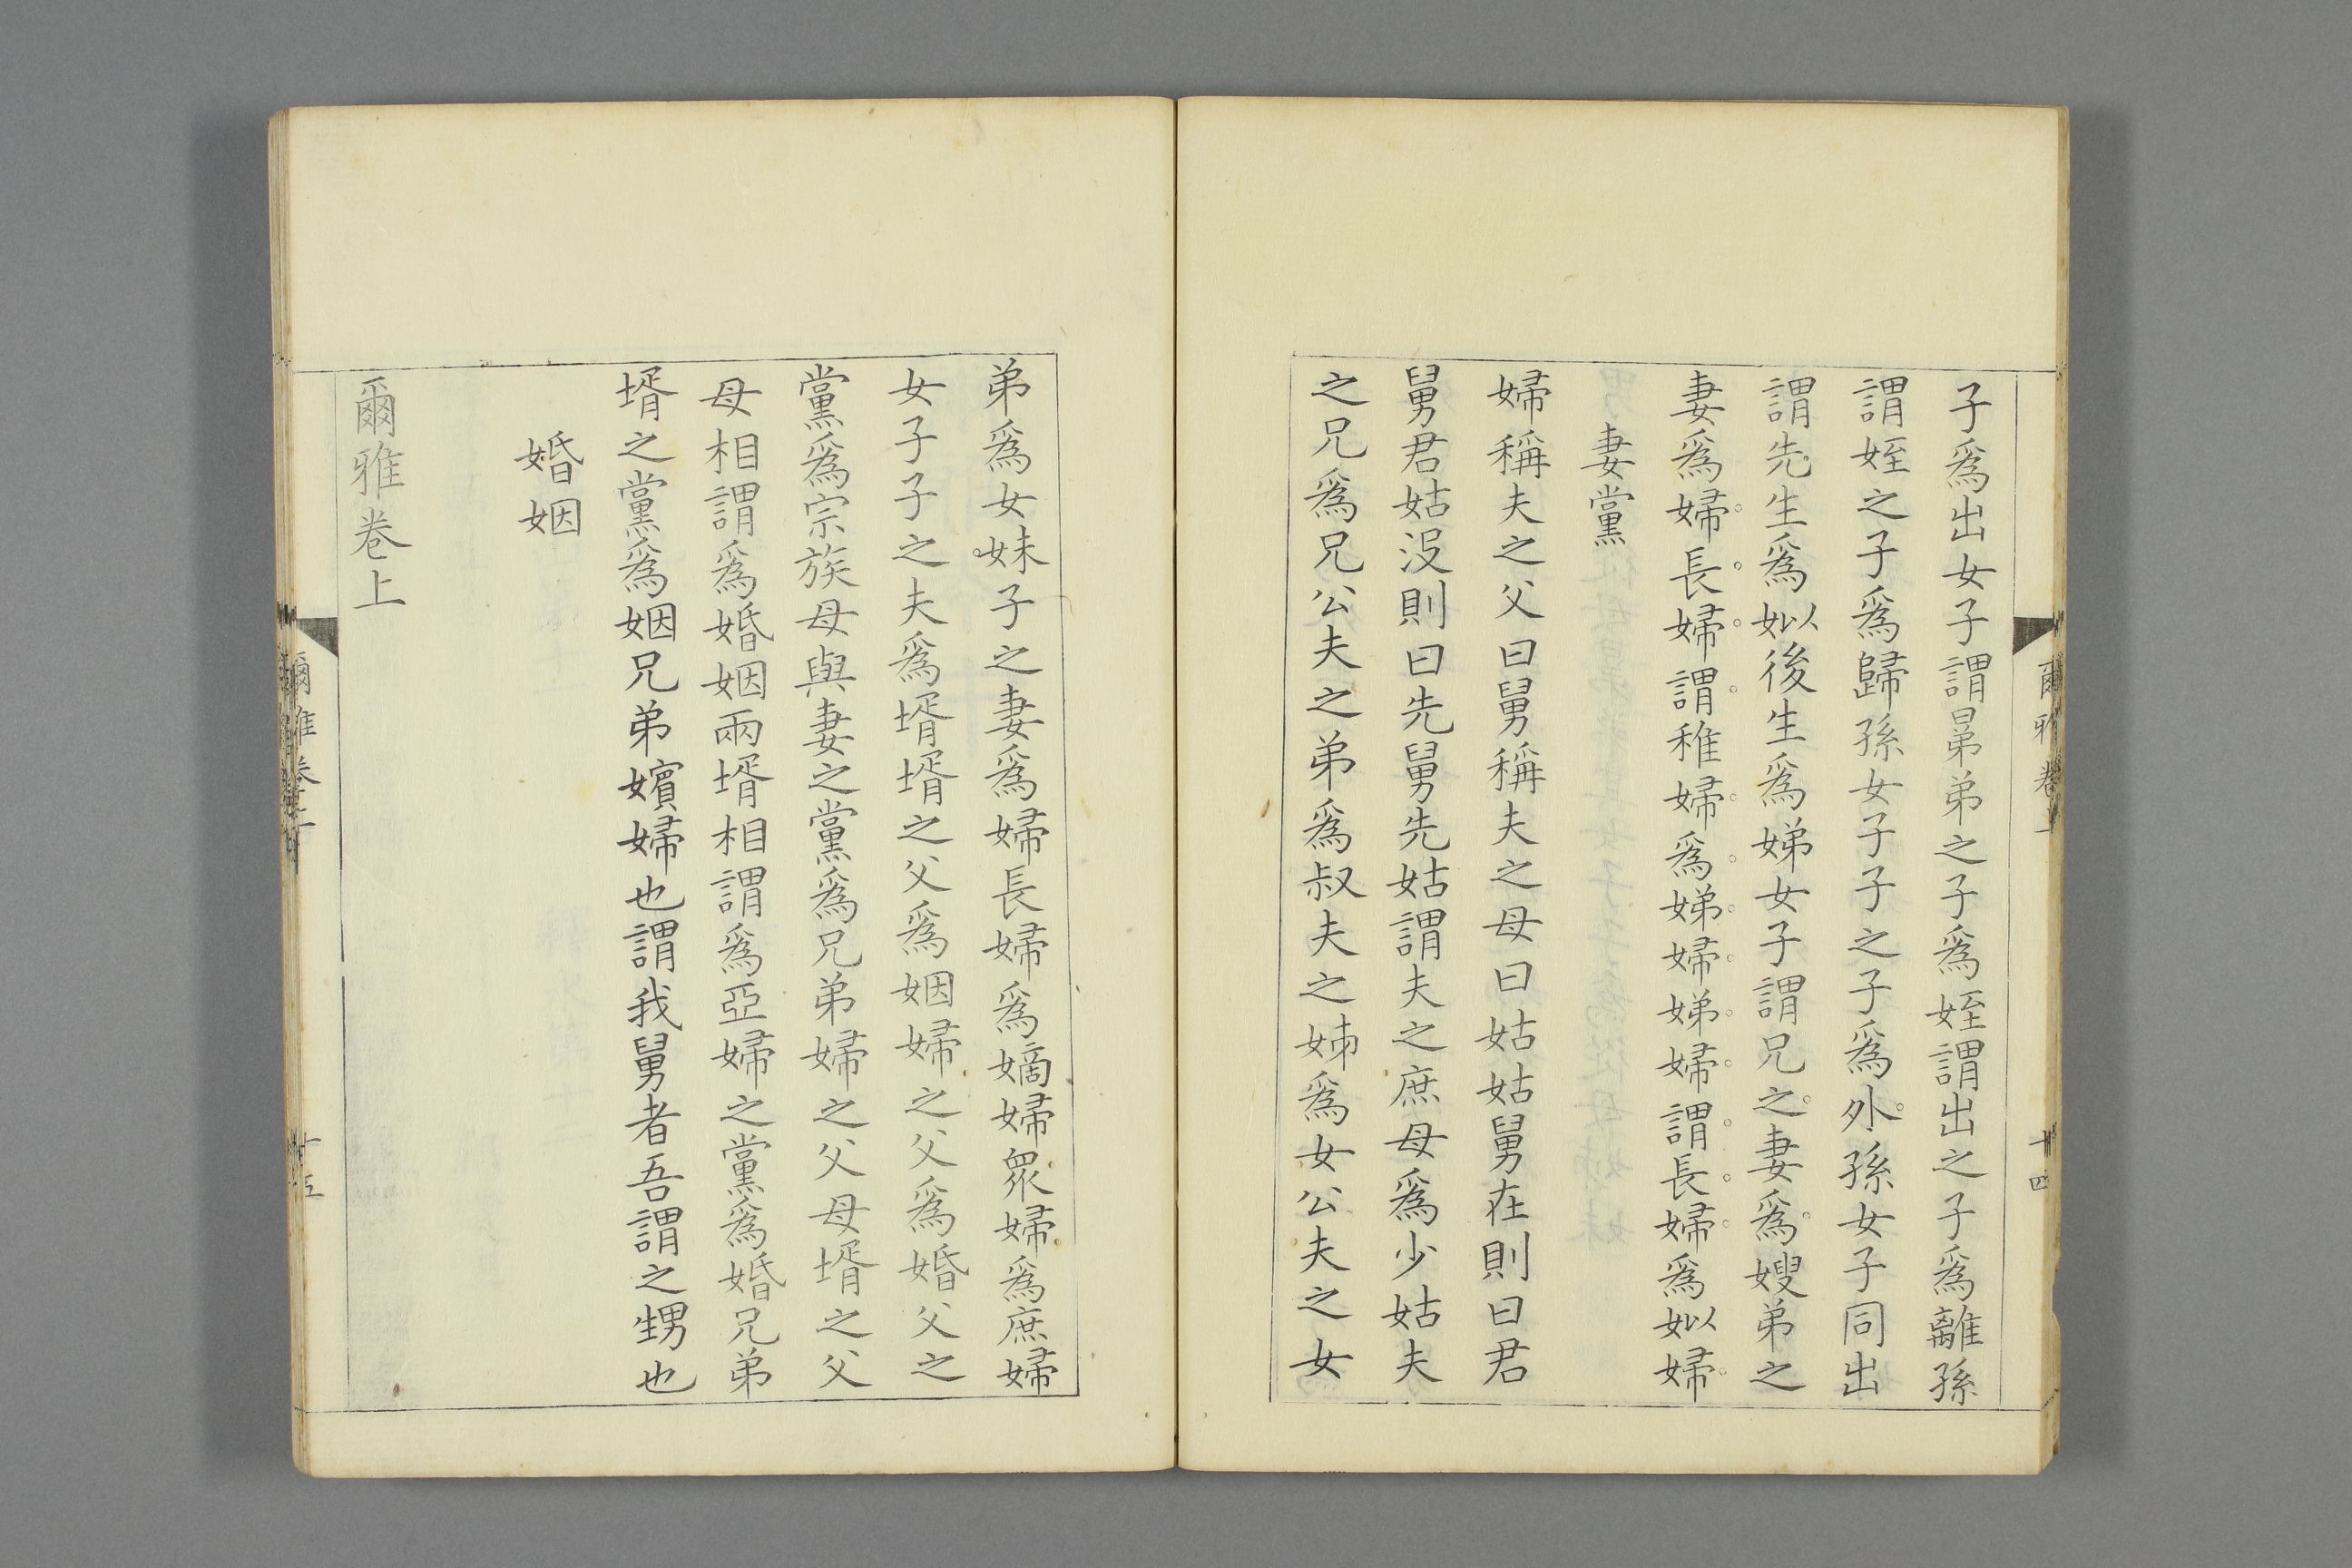 子爲出女子謂晜弟之子爲姪謂出之子爲離孫
謂姪之子爲歸孫女子子之子爲外孫女子同出
謂先生爲姒後生爲娣女子謂兄之妻爲嫂弟之
妻爲婦長婦謂稚婦爲娣婦娣婦謂長婦爲姒婦
妻黨
婦稱夫之父曰舅稱夫之母曰姑姑舅在則曰君
舅君姑没則曰先舅先姑謂夫之庶母爲少姑夫
之兄爲兄公夫之弟爲叔夫之姊爲女公夫之女
弟爲女妹子之妻爲婦長婦爲嫡婦衆婦爲庶婦
女子子之夫爲壻壻之父爲姻婦之父爲婚父之
黨爲宗族母與妻之黨爲兄弟婦之父母壻之父
母相謂爲婚姻兩壻相謂爲亞婦之黨爲婚兄弟
壻之黨爲姻兄弟嬪婦也謂我舅者吾謂之甥也
婚姻
爾雅卷上
爾雅卷上
十四
爾雅卷上
十五